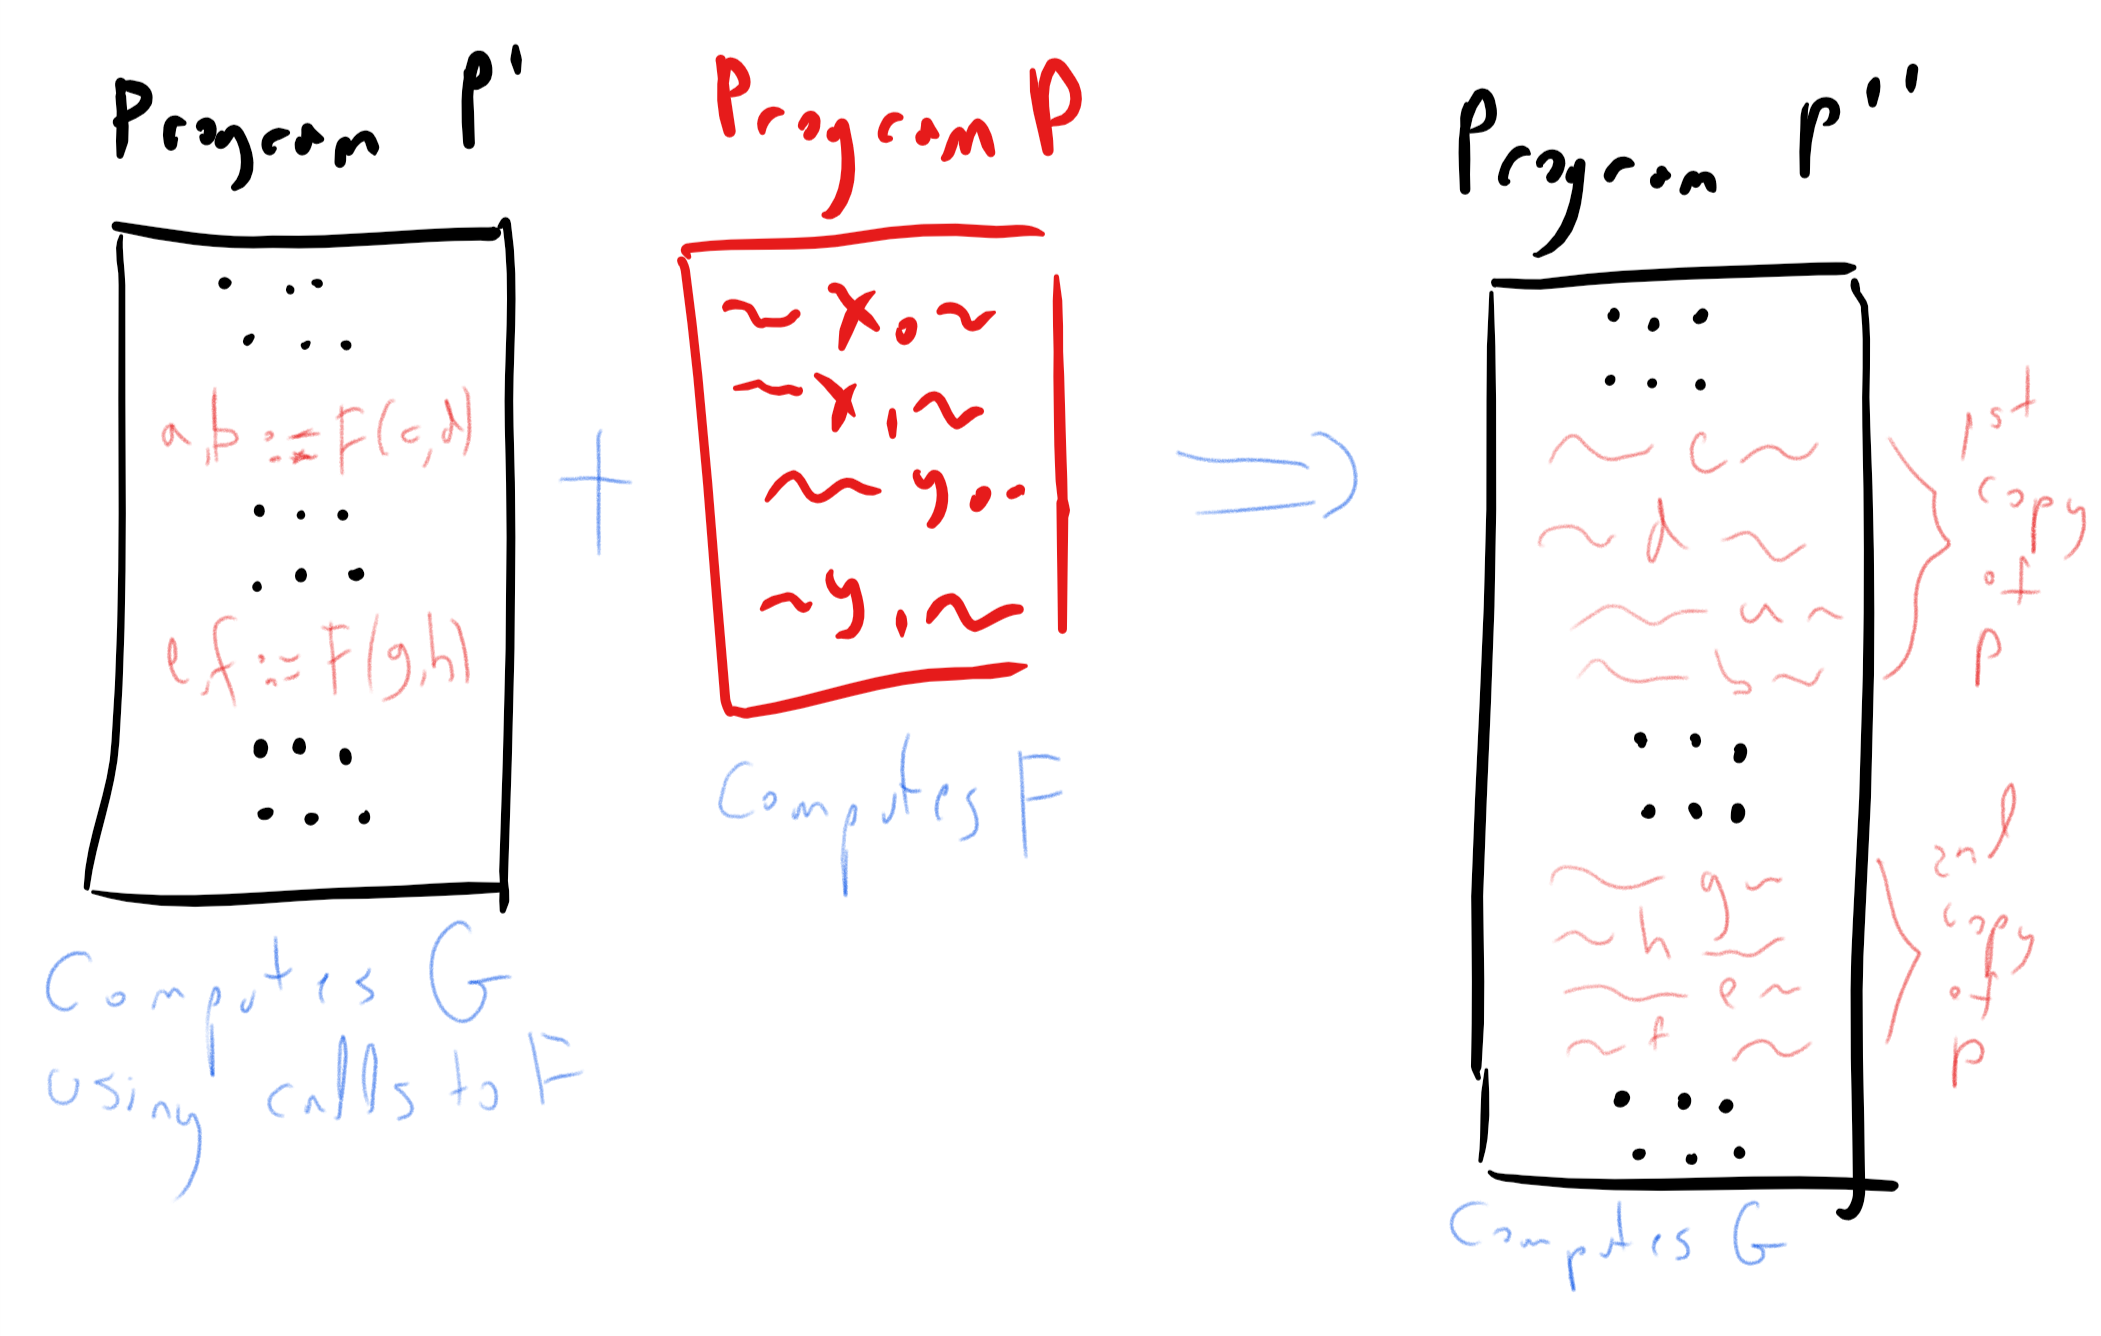 Program P'
. . .
. . .
a,b := F(c,d)
. . .
. . .
e,f := F(g,h)
. . .
. . .
Computes G
using calls to F
+
Program P
~ x0 ~
~ x1 ~
~ y0 ~
~ y1 ~
Computes F
⇒
Program P''
. . .
. . .
~ c ~
~ d ~
~ a ~
~ b ~
1st
copy
of
P
. . .
. . .
~ g ~
~ h ~
~ e ~
~ f ~
2nd
copy
of
P
. . .
. . .
Computes G